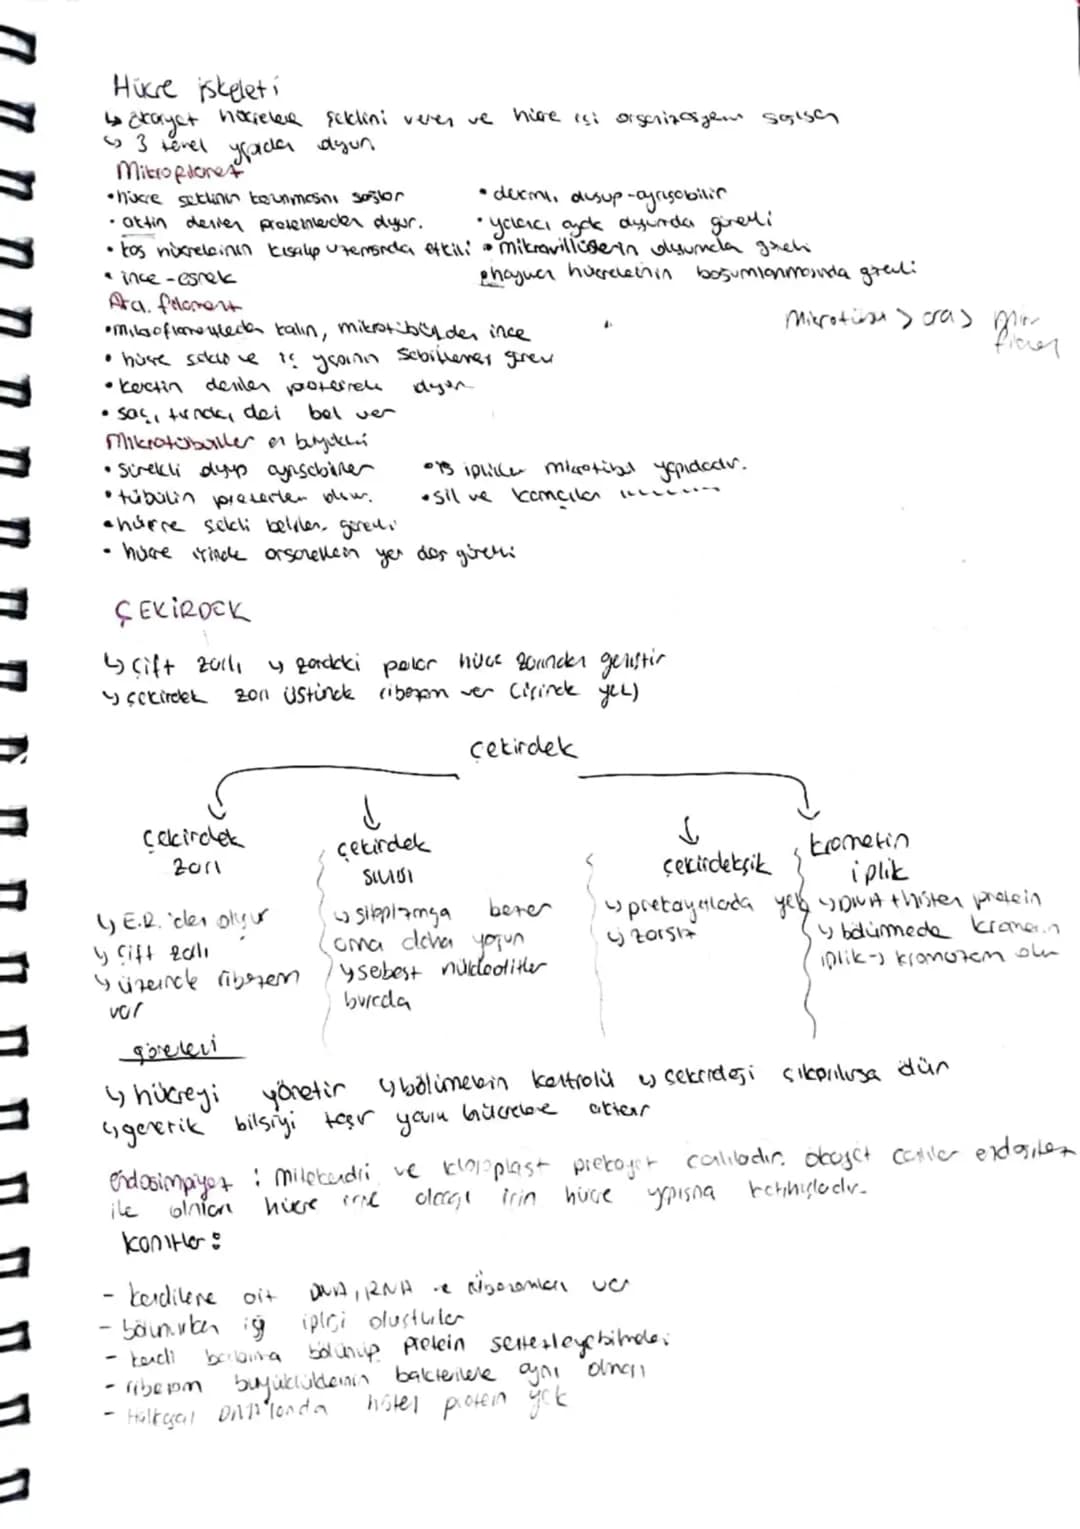 Hücre iskeleti
↳ ökaryot hücrelere şeklini veren ve hücre içi organizasyonu sağlayan
↳ 3 temel yapıdan oluşur
Mikroflament
• hücre şeklinin korunmasını sağlar
• aktin denen proteinlerden oluşur.
• kas hücrelerinin kısalıp uzamasında etkili
• ince - esnek
• devamlı oluşup - ayrışabilir
• yalancı ayak oluşumunda görevli
• mikrovillüslerin oluşumda görevli
• hayvan hücrelerinin boğumlanmasında görevli
Ara flament
• mikroflamentlerden kalın, mikrotübülden ince
• hücre şekli ve iç yapının görev
• keratin denilen proteinden oluşur
• saç, tırnak, deri bol var
Mikrotübül > ara > Mikro flament
Mikrotübüller en büyükleri
• sürekli oluşup ayrışabilirler
• tübülin proteinden oluşur.
• hücre şekli belirlen. görevli
• hücre içinde organellerin yer değ görevli
• iğ iplikler mikrotübül yapıdadır.
• sil ve kamçılar
ÇEKİRDEK
↳ çift zarlı ↳ zardaki porlar hücre zarından geniştir
↳ çekirdek zarı üstünde ribozom var (içinde yok)
çekirdek
çekirdek zarı
↳ E.R.'den oluşur
↳ çift zarlı
↳ üzerinde ribozom
var
çekirdek
sıvısı
↳ sitoplazmaya benzer
ama daha yoğun
↳ serbest nükleotitler
burada
çekirdekçik
↳ prokaryotlarda yok
↳ zarsız
kromatin
iplik
↳ DNA + histon protein
↳ bölünmede kromatin
iplik → kromozom olur
görevleri
↳ hücreyi yönetir ↳ bölünmenin kontrolü ↳ çekirdeği çıkarılırsa ölür
↳ genetik bilgiyi taşır yavru hücrelere aktarır
endosimbiyoz : mitokondri ve kloroplast prokaryot canlılardır. ökaryot canlılar endositoz
ile alınan hücre içine olacağı için hücre yapısına katılmışlardır.
Kanıtlar :
- kendilerine ait DNA, RNA ve Ribozomları var
- bölünürken iğ ipliği oluştururlar
- kendi başlarına bölünüp protein sentezleyebilmeleri
- ribozom büyüklüklerinin bakterilerle aynı olması
- Halkasal DNA'larında histon protein yok